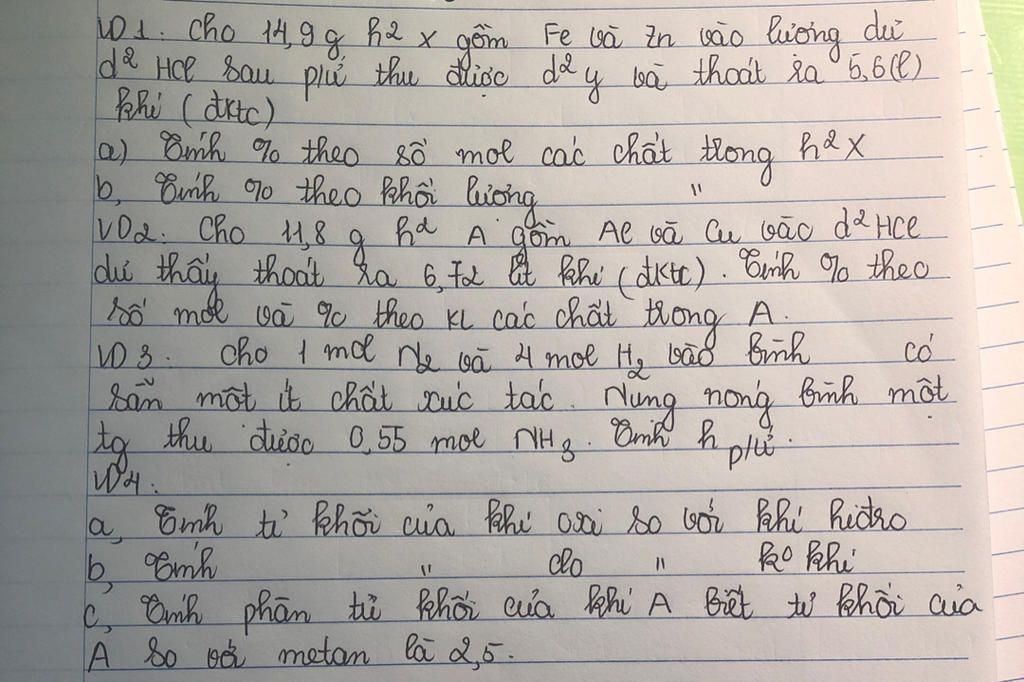 VD1. Cho 14,9 g h² X gồm Fe và Zn vào lượng dư
d² HCl sau p/ứ thu được d² y và thoát ra 5,6(l)
khí (đktc)
a) Tính % theo số mol các chất trong h² X
b, Tính % theo khối lượng "
VD2. Cho 11,8 g h² A gồm Al và Cu vào d² HCl
dư thấy thoát ra 6,72 lít khí (đktc). Tính % theo
số mol và % theo KL các chất trong A.
VD3. Cho 1 mol N₂ và 4 mol H₂ vào bình có
sẵn một ít chất xúc tác. Nung nóng bình một
tg thu được 0,55 mol NH₃. Tính h p/ứ.
VD4.
a, Tính tỉ khối của khí oxi so với khí hiđro
b, Tính " clo " k⁰ khí
c, Tính phân tử khối của khí A biết tỉ khối của
A so với metan là 2,5.